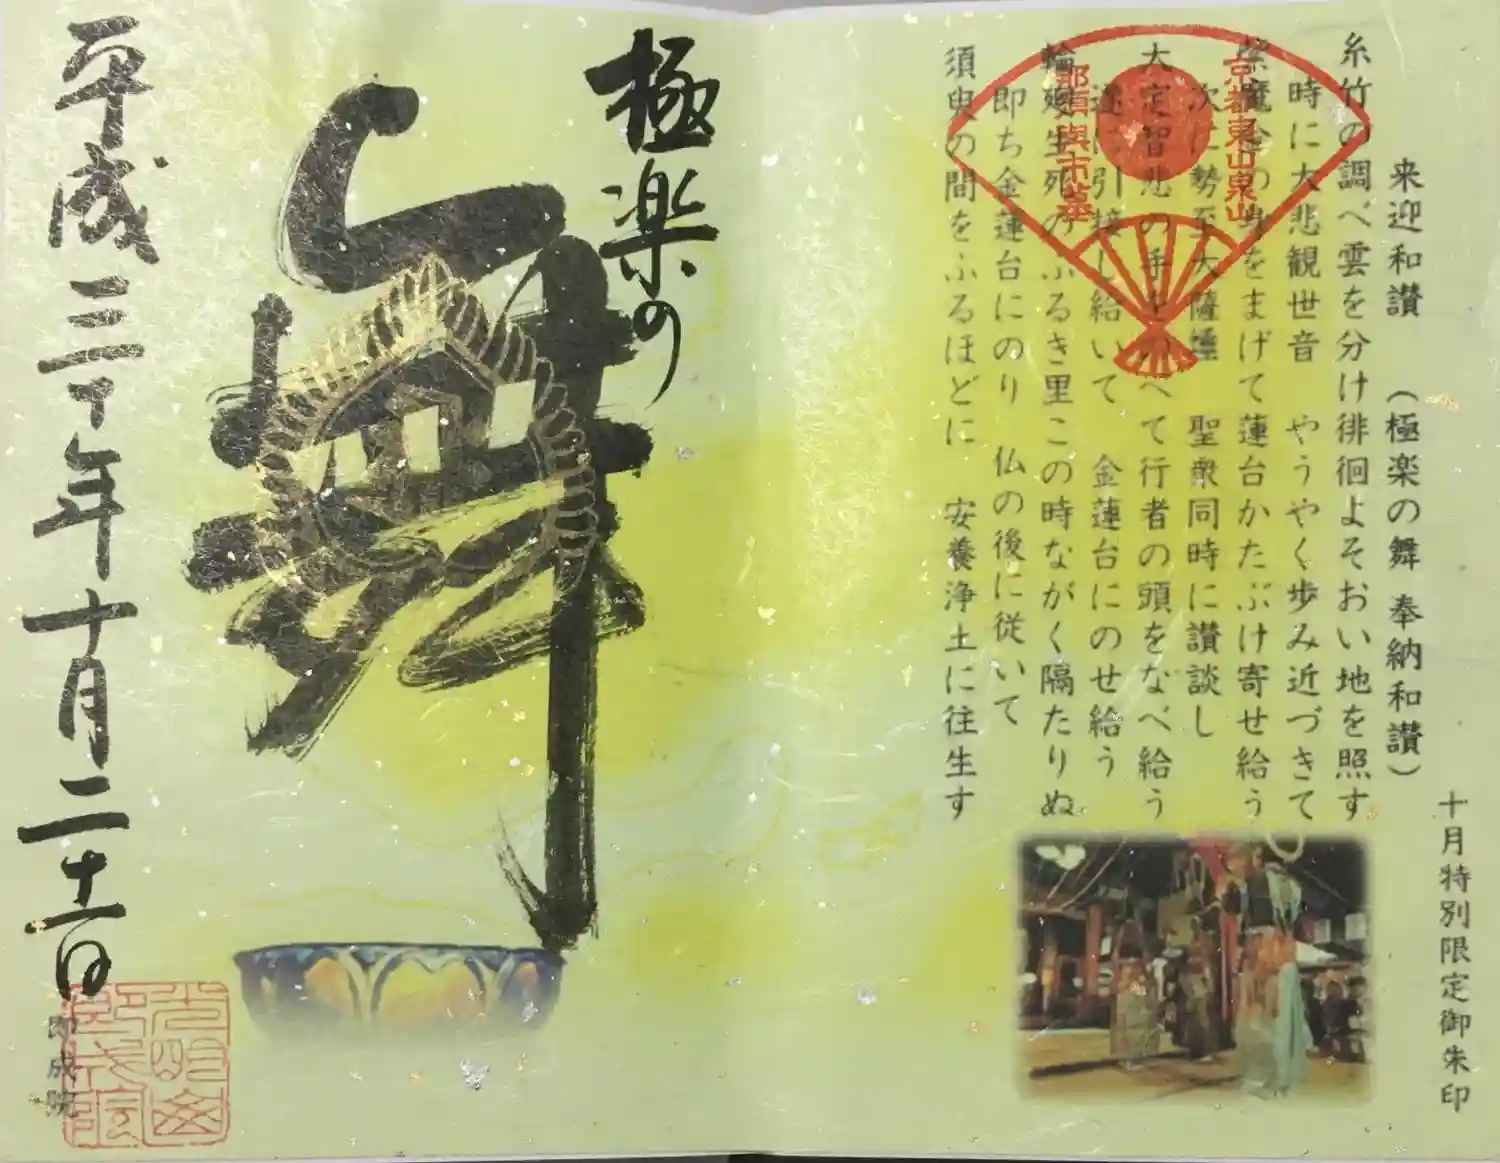 十月特別限定御朱印
来迎和讃　（極楽の舞 奉納和讃）
糸竹の調べ雲を分け徘徊よそおい地を照す
時に大悲観世音　やうやく歩み近づきて
紫魔金の身をまげて蓮台かたぶけ寄せ給う
次に勢至大薩埵　聖衆同時に讃談し
大定智悲の手をのべて行者の頭をなべ給う
遂に引接し給いて　金蓮台にのせ給う
輪廻生死のふるき里この時ながく隔たりぬ
即ち金蓮台にのり　仏の後に従いて
須臾の間をふるほどに　安養浄土に往生す
京都東山泉山
那須與市墓
極楽の
舞
平成三十年十月二十一日
即成院